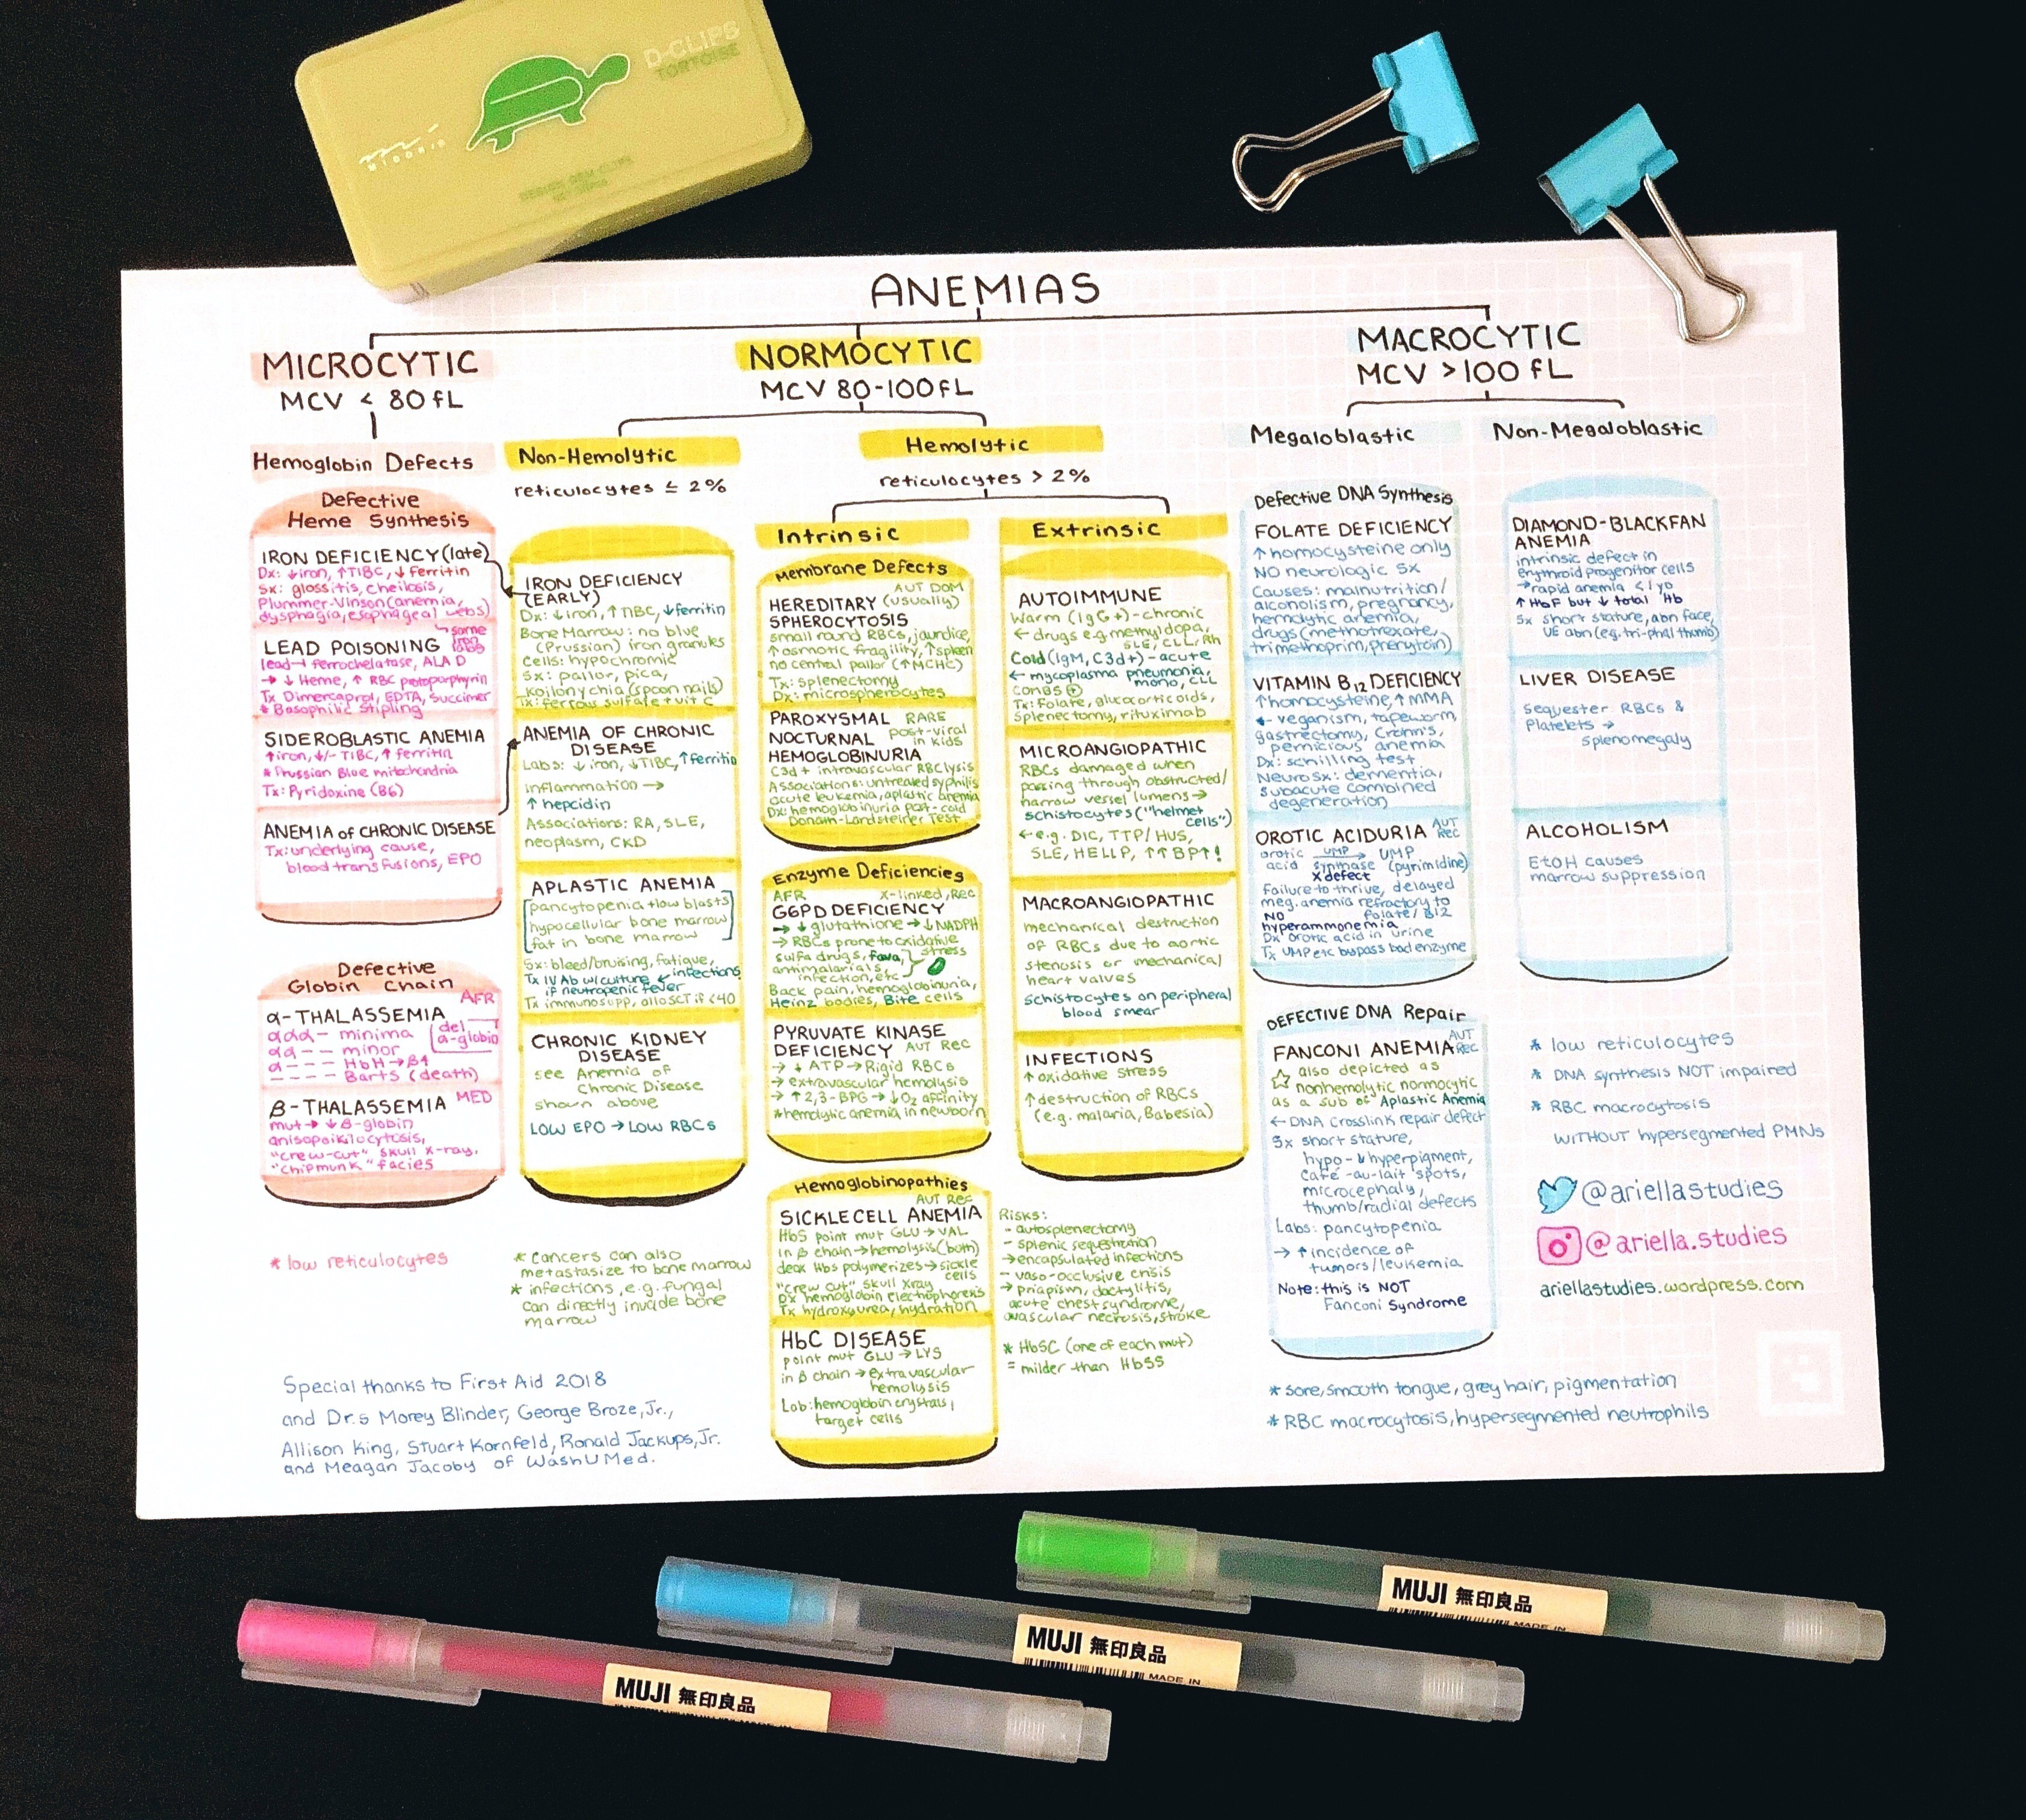 D-CLIPS
TORTOISE
MIDORI
ANEMIAS
MICROCYTIC
MCV < 80 fL
Hemoglobin Defects
Defective
Heme Synthesis
IRON DEFICIENCY (late)
Dx: ↓iron, ↑TIBC, ↓ ferritin
Sx: glossitis, cheilosis,
Plummer-Vinson (anemia,
dysphagia, esophageal webs)
LEAD POISONING
same
lead⊣ ferrochelatase, ALA D
→ ↓ Heme, ↑ RBC protoporphyrin
Tx Dimercaprol, EDTA, Succimer
* Basophilic Stipling
SIDEROBLASTIC ANEMIA
↑iron, ↓/- TIBC, ↑ ferritin
* Prussian Blue mitochondria
Tx: Pyridoxine (B6)
ANEMIA of CHRONIC DISEASE
Tx: underlying cause,
blood transfusions, EPO
Defective
Globin Chain
AFR
α-THALASSEMIA
ααα- minima
αα-- minor
α--- HbH→β4
---- Barts (death)
del
α-globin
β-THALASSEMIA MED
mut→ ↓ β-globin
anisopoikilocytosis,
"crew-cut" skull x-ray,
"chipmunk" facies
* low reticulocytes
NORMOCYTIC
MCV 80-100fL
Non-Hemolytic
reticulocytes ≤ 2%
IRON DEFICIENCY
(EARLY)
Dx: ↓iron, ↑TIBC, ↓ferritin
Bone Marrow: no blue
(Prussian) iron granules
Cells: hypochromic
Sx: pallor, pica,
koilonychia (spoon nails)
Tx: ferrous sulfate + vit C
ANEMIA OF CHRONIC
DISEASE
Labs: ↓ iron, ↓TIBC, ↑ferritin
inflammation →
↑ hepcidin
Associations: RA, SLE,
neoplasm, CKD
APLASTIC ANEMIA
pancytopenia + low blasts
hypocellular bone marrow
fat in bone marrow
Sx: bleed/bruising, fatigue,
infections
Tx IV Ab w/culture
if neutropenic fever
Tx immunosupp, alloSCT if <40
CHRONIC KIDNEY
DISEASE
see Anemia of
Chronic Disease
shown above
LOW EPO → LOW RBCs
* cancers can also
metastasize to bone marrow
* infections, e.g. fungal
can directly invade bone
marrow
Hemolytic
reticulocytes > 2%
Intrinsic
Membrane Defects
AUT DOM
HEREDITARY (usually)
SPHEROCYTOSIS
small round RBCs, jaundice,
↑osmotic fragility, ↑spleen
no central pallor (↑MCHC)
Tx: splenectomy
Dx: microspherocytes
PAROXYSMAL RARE
NOCTURNAL post-viral
in kids
HEMOGLOBINURIA
C3d + intravascular RBC lysis
Associations: untreated syphilis
acute leukemia, aplastic anemia
Dx: hemoglobinuria post-cold
Donath-Landsteiner Test
Enzyme Deficiencies
AFR X-linked, Rec
G6PD DEFICIENCY
→ ↓ glutathione → ↓ NADPH
→ RBCs prone to oxidative
stress
sulfa drugs, fava,
antimalarials,
infection, etc
Back pain, hemoglobinuria,
Heinz bodies, Bite cells
PYRUVATE KINASE
DEFICIENCY AUT Rec
→ ↓ ATP → Rigid RBCs
→ extravascular hemolysis
→ ↑ 2,3-BPG → ↓ O₂ affinity
*hemolytic anemia in newborn
Hemoglobinopathies
AUT Rec
SICKLE CELL ANEMIA
HbS point mut GLU → VAL
in β chain → hemolysis (both)
deox HbS polymerizes → sickle
cells
"crew cut" skull Xray
Dx hemoglobin electrophoresis
Tx hydroxyurea, hydration
HbC DISEASE
point mut GLU → LYS
in β chain → extravascular
hemolysis
Lab: hemoglobin crystals,
target cells
Extrinsic
AUTOIMMUNE
Warm (IgG+) - chronic
← drugs e.g. methyldopa,
SLE, CLL, Rh
Cold (IgM, C3d+) - acute
← mycoplasma pneumonia,
mono, CLL
Combs ⊕
Tx: Folate, glucocorticoids,
splenectomy, rituximab
MICROANGIOPATHIC
RBCs damaged when
passing through obstructed/
narrow vessel lumens →
schistocytes ("helmet
cells")
← e.g. DIC, TTP/HUS,
SLE, HELLP, ↑↑BP↑!
MACROANGIOPATHIC
mechanical destruction
of RBCs due to aortic
stenosis or mechanical
heart valves
schistocytes on peripheral
blood smear
INFECTIONS
↑ oxidative stress
↑ destruction of RBCs
(e.g. malaria, Babesia)
Risks:
- autosplenectomy
- splenic sequestration
→ encapsulated infections
- vaso-occlusive crisis
→ priapism, dactylitis,
acute chest syndrome,
avascular necrosis, stroke
* HbSC (one of each mut)
= milder than HbSS
MACROCYTIC
MCV >100 fL
Megaloblastic
Defective DNA Synthesis
FOLATE DEFICIENCY
↑homocysteine only
NO neurologic sx
Causes: malnutrition/
alcoholism, pregnancy,
hemolytic anemia,
drugs (methotrexate,
trimethoprim, phenytoin)
VITAMIN B12 DEFICIENCY
↑homocysteine, ↑ MMA
← veganism, tapeworm,
gastrectomy, Crohn's,
pernicious anemia
Dx: schilling test
Neuro Sx: dementia,
subacute combined
degeneration)
OROTIC ACIDURIA AUT
Rec
orotic UMP → UMP
acid synthase (pyrimidine)
X defect
Failure to thrive, delayed
meg. anemia refractory to
folate/B12
NO
hyperammonemia
Dx orotic acid in urine
Tx UMP etc bypass bad enzyme
DEFECTIVE DNA Repair
AUT
FANCONI ANEMIA Rec
☆ also depicted as
nonhemolytic normocytic
as a sub of Aplastic Anemia
← DNA crosslink repair defect
Sx short stature,
hypo-&hyperpigment,
café-au-lait spots,
microcephaly,
thumb/radial defects
Labs: pancytopenia
→ ↑incidence of
tumors/leukemia
Note: this is NOT
Fanconi Syndrome
* sore, smooth tongue, grey hair, pigmentation
* RBC macrocytosis, hypersegmented neutrophils
Non-Megaloblastic
DIAMOND-BLACKFAN
ANEMIA
intrinsic defect in
erythroid progenitor cells
→ rapid anemia < 1 yo
↑ HbF but ↓ total Hb
Sx short stature, abn face,
UE abn (e.g. tri-phal thumb)
LIVER DISEASE
sequester RBCs &
Platelets →
splenomegaly
ALCOHOLISM
EtOH causes
marrow suppression
* low reticulocytes
* DNA synthesis NOT impaired
* RBC macrocytosis
WITHOUT hypersegmented PMNs
@ariellastudies
@ariella.studies
ariellastudies.wordpress.com
Special thanks to First Aid 2018
and Dr.s Morey Blinder, George Broze, Jr.,
Allison King, Stuart Kornfeld, Ronald Jackups, Jr.
and Meagan Jacoby of WashU Med.
MUJI 無印良品
MADE IN
MUJI 無印良品
MADE IN
MUJI 無印良品